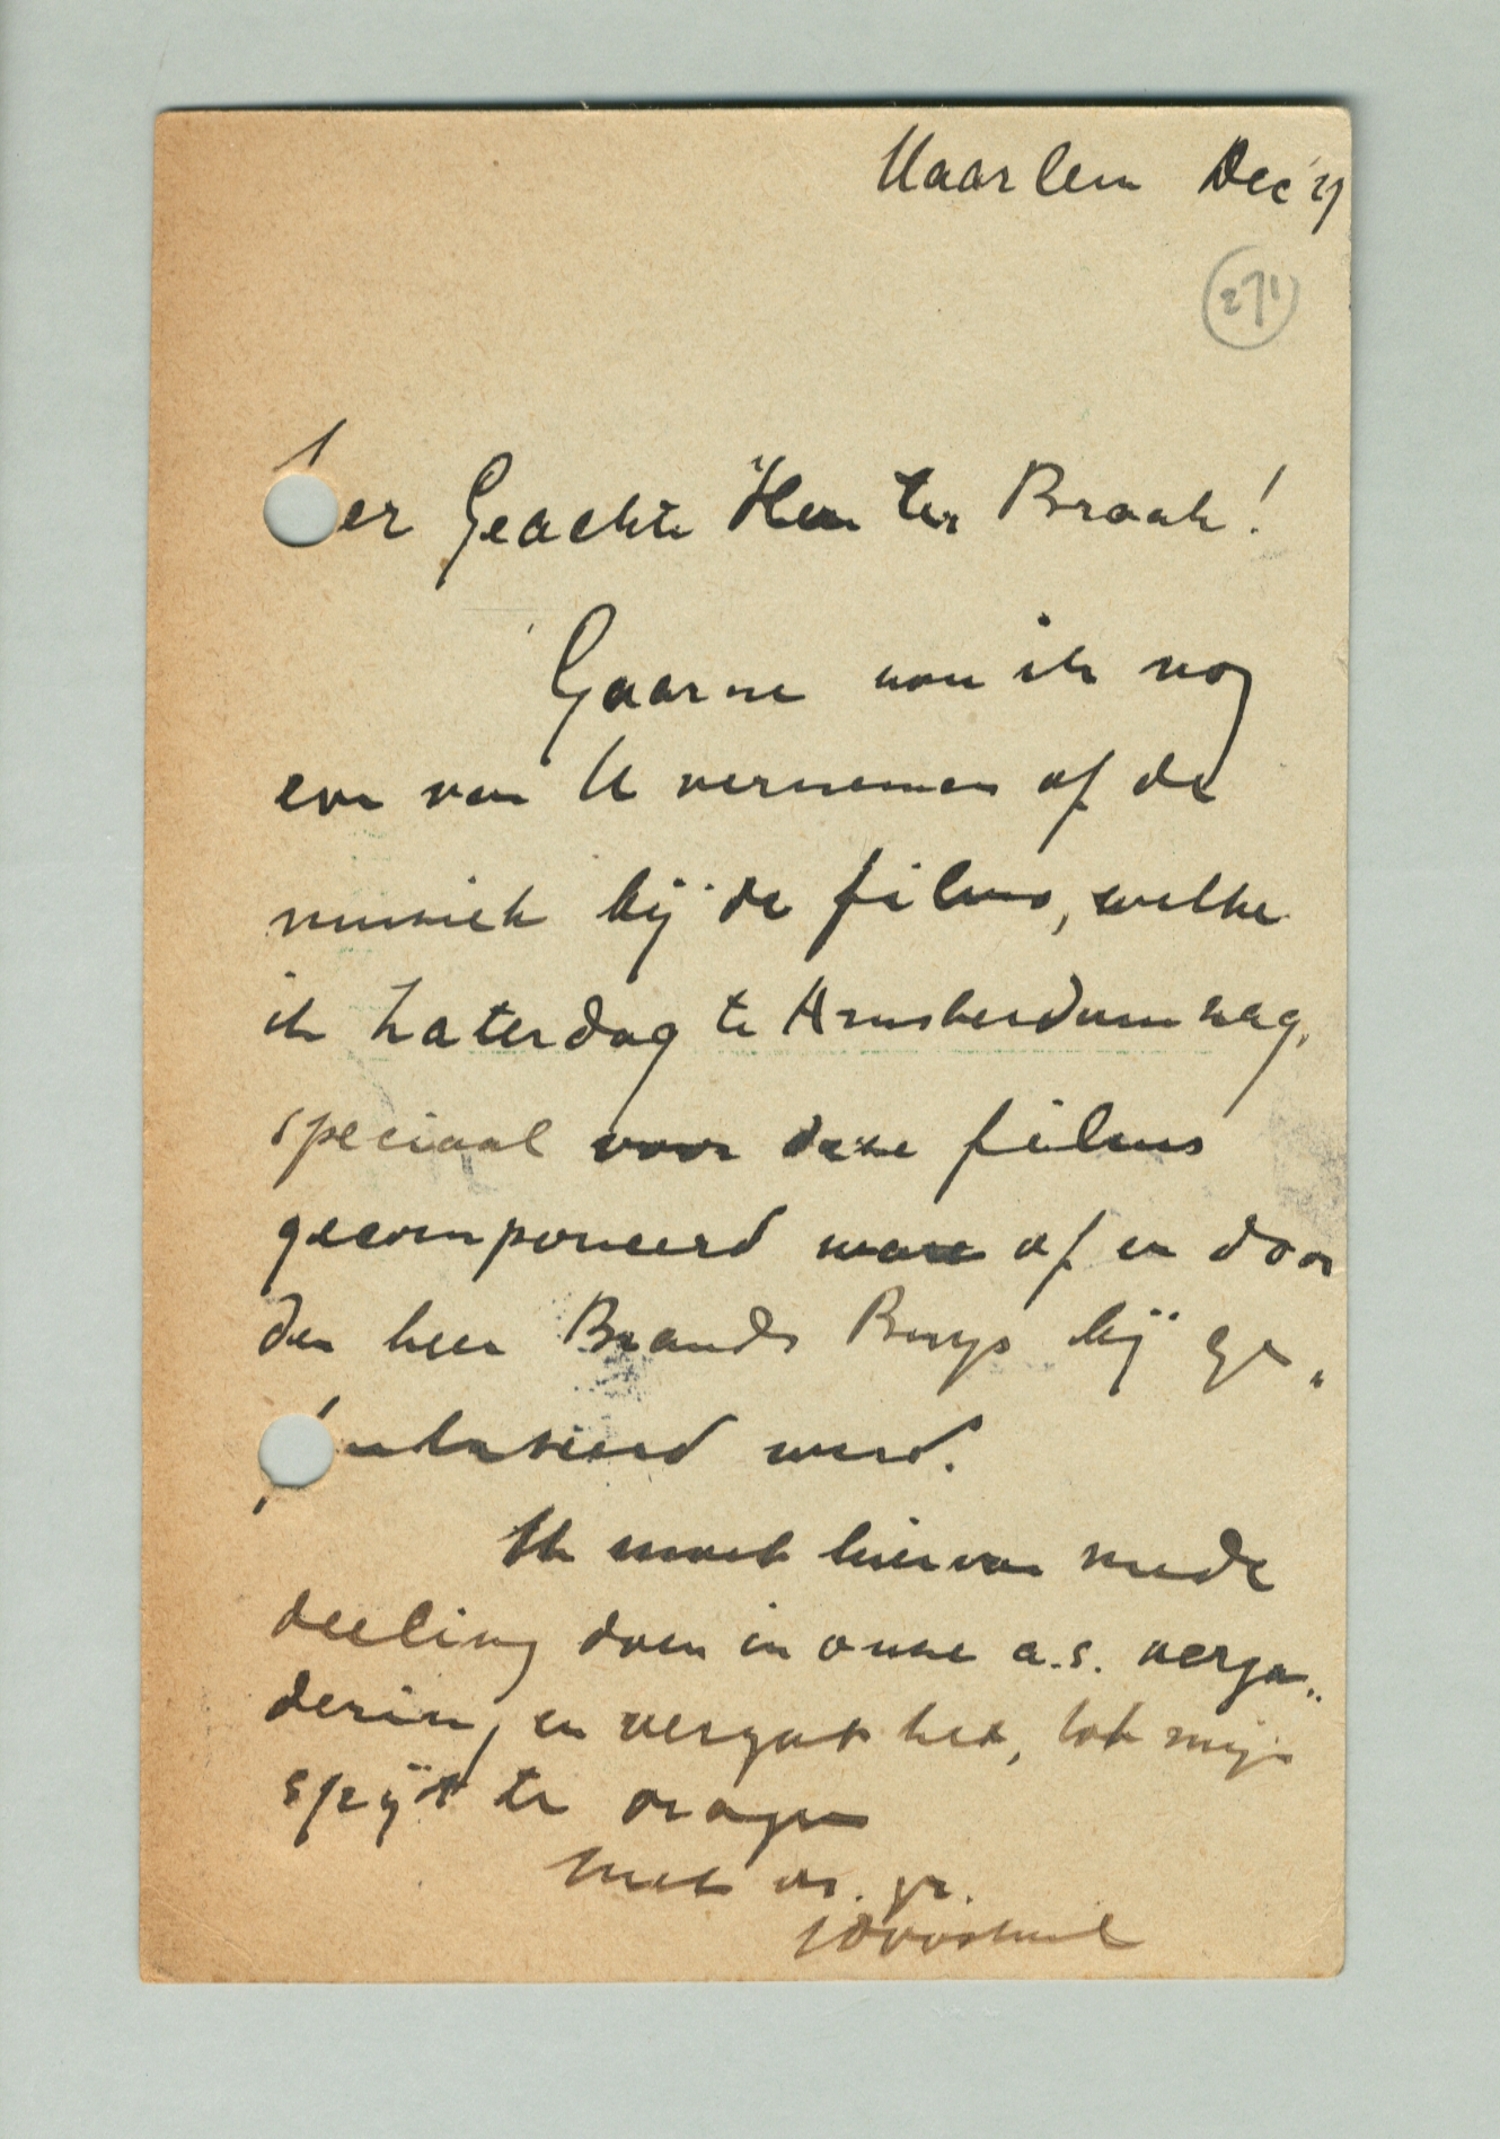 Haarlem Dec '27
271
er Geachte Heer ter Braak!
Gaarne zou ik nog
even van U vernemen of de
muziek bij de films, welke
ik Zaterdag te Amsterdam zag,
speciaal voor deze films
gecomponeerd was of er door
den heer Brands Buys bij ge„
werd.
Ik moet hiervan mede
deeling doen in onze a.s. verga„
dering en vergat het, tot mijn
spijt te vragen
Met vr. gr.